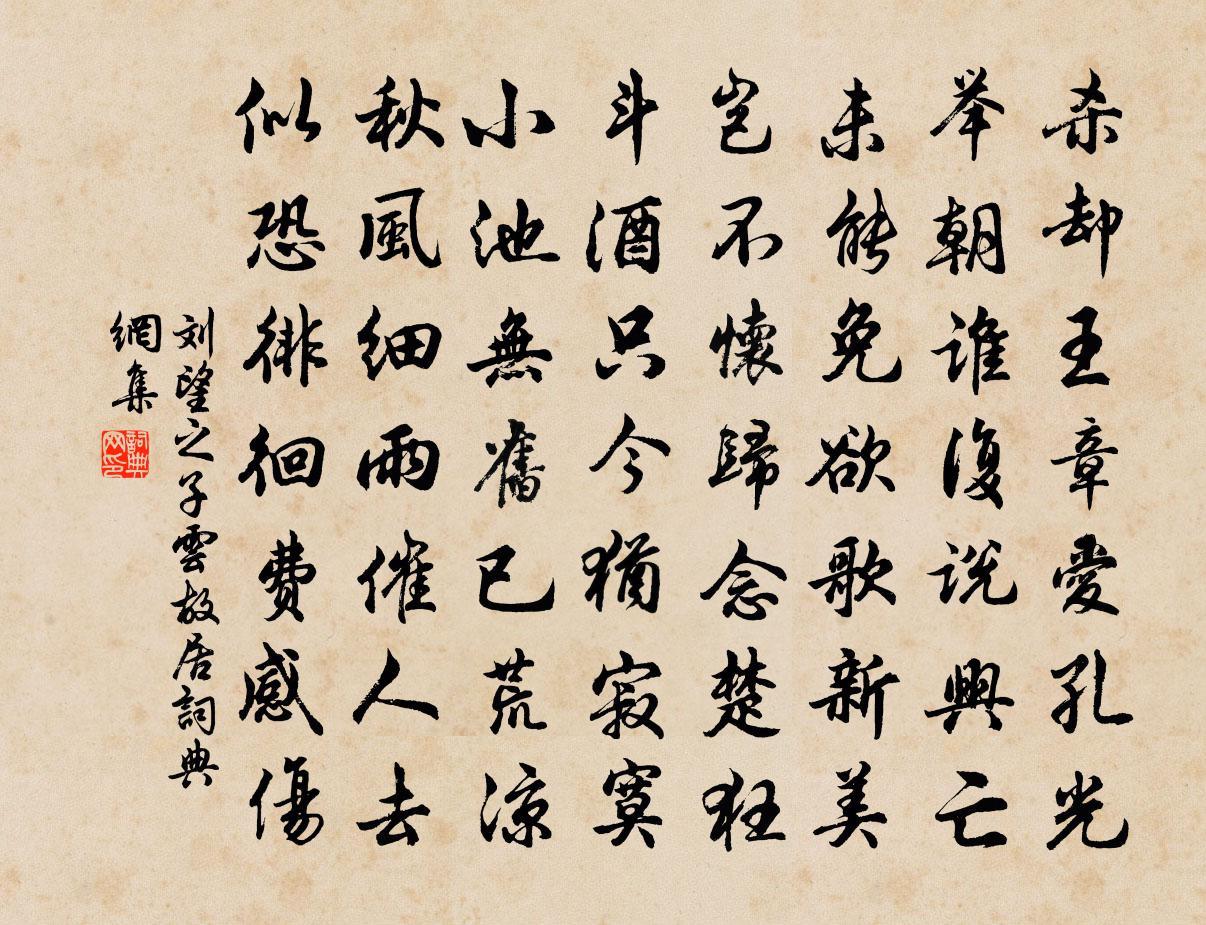 杀却王章爱孔光
举朝谁復说興亡
未能免欲歌新美
岂不懷歸念楚狂
斗酒只今猶寂寞
小池無舊已荒涼
秋風细雨催人去
似恐徘徊費感傷
刘望之子雲故居詞典
網集
詞典
网印